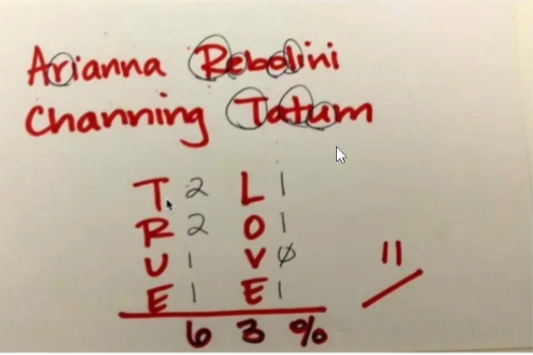 Arianna Rebolini
Channing Tatum
T 2 L 1
R 2 O 1
U 1 V 0
E 1 E 1
6 3 %